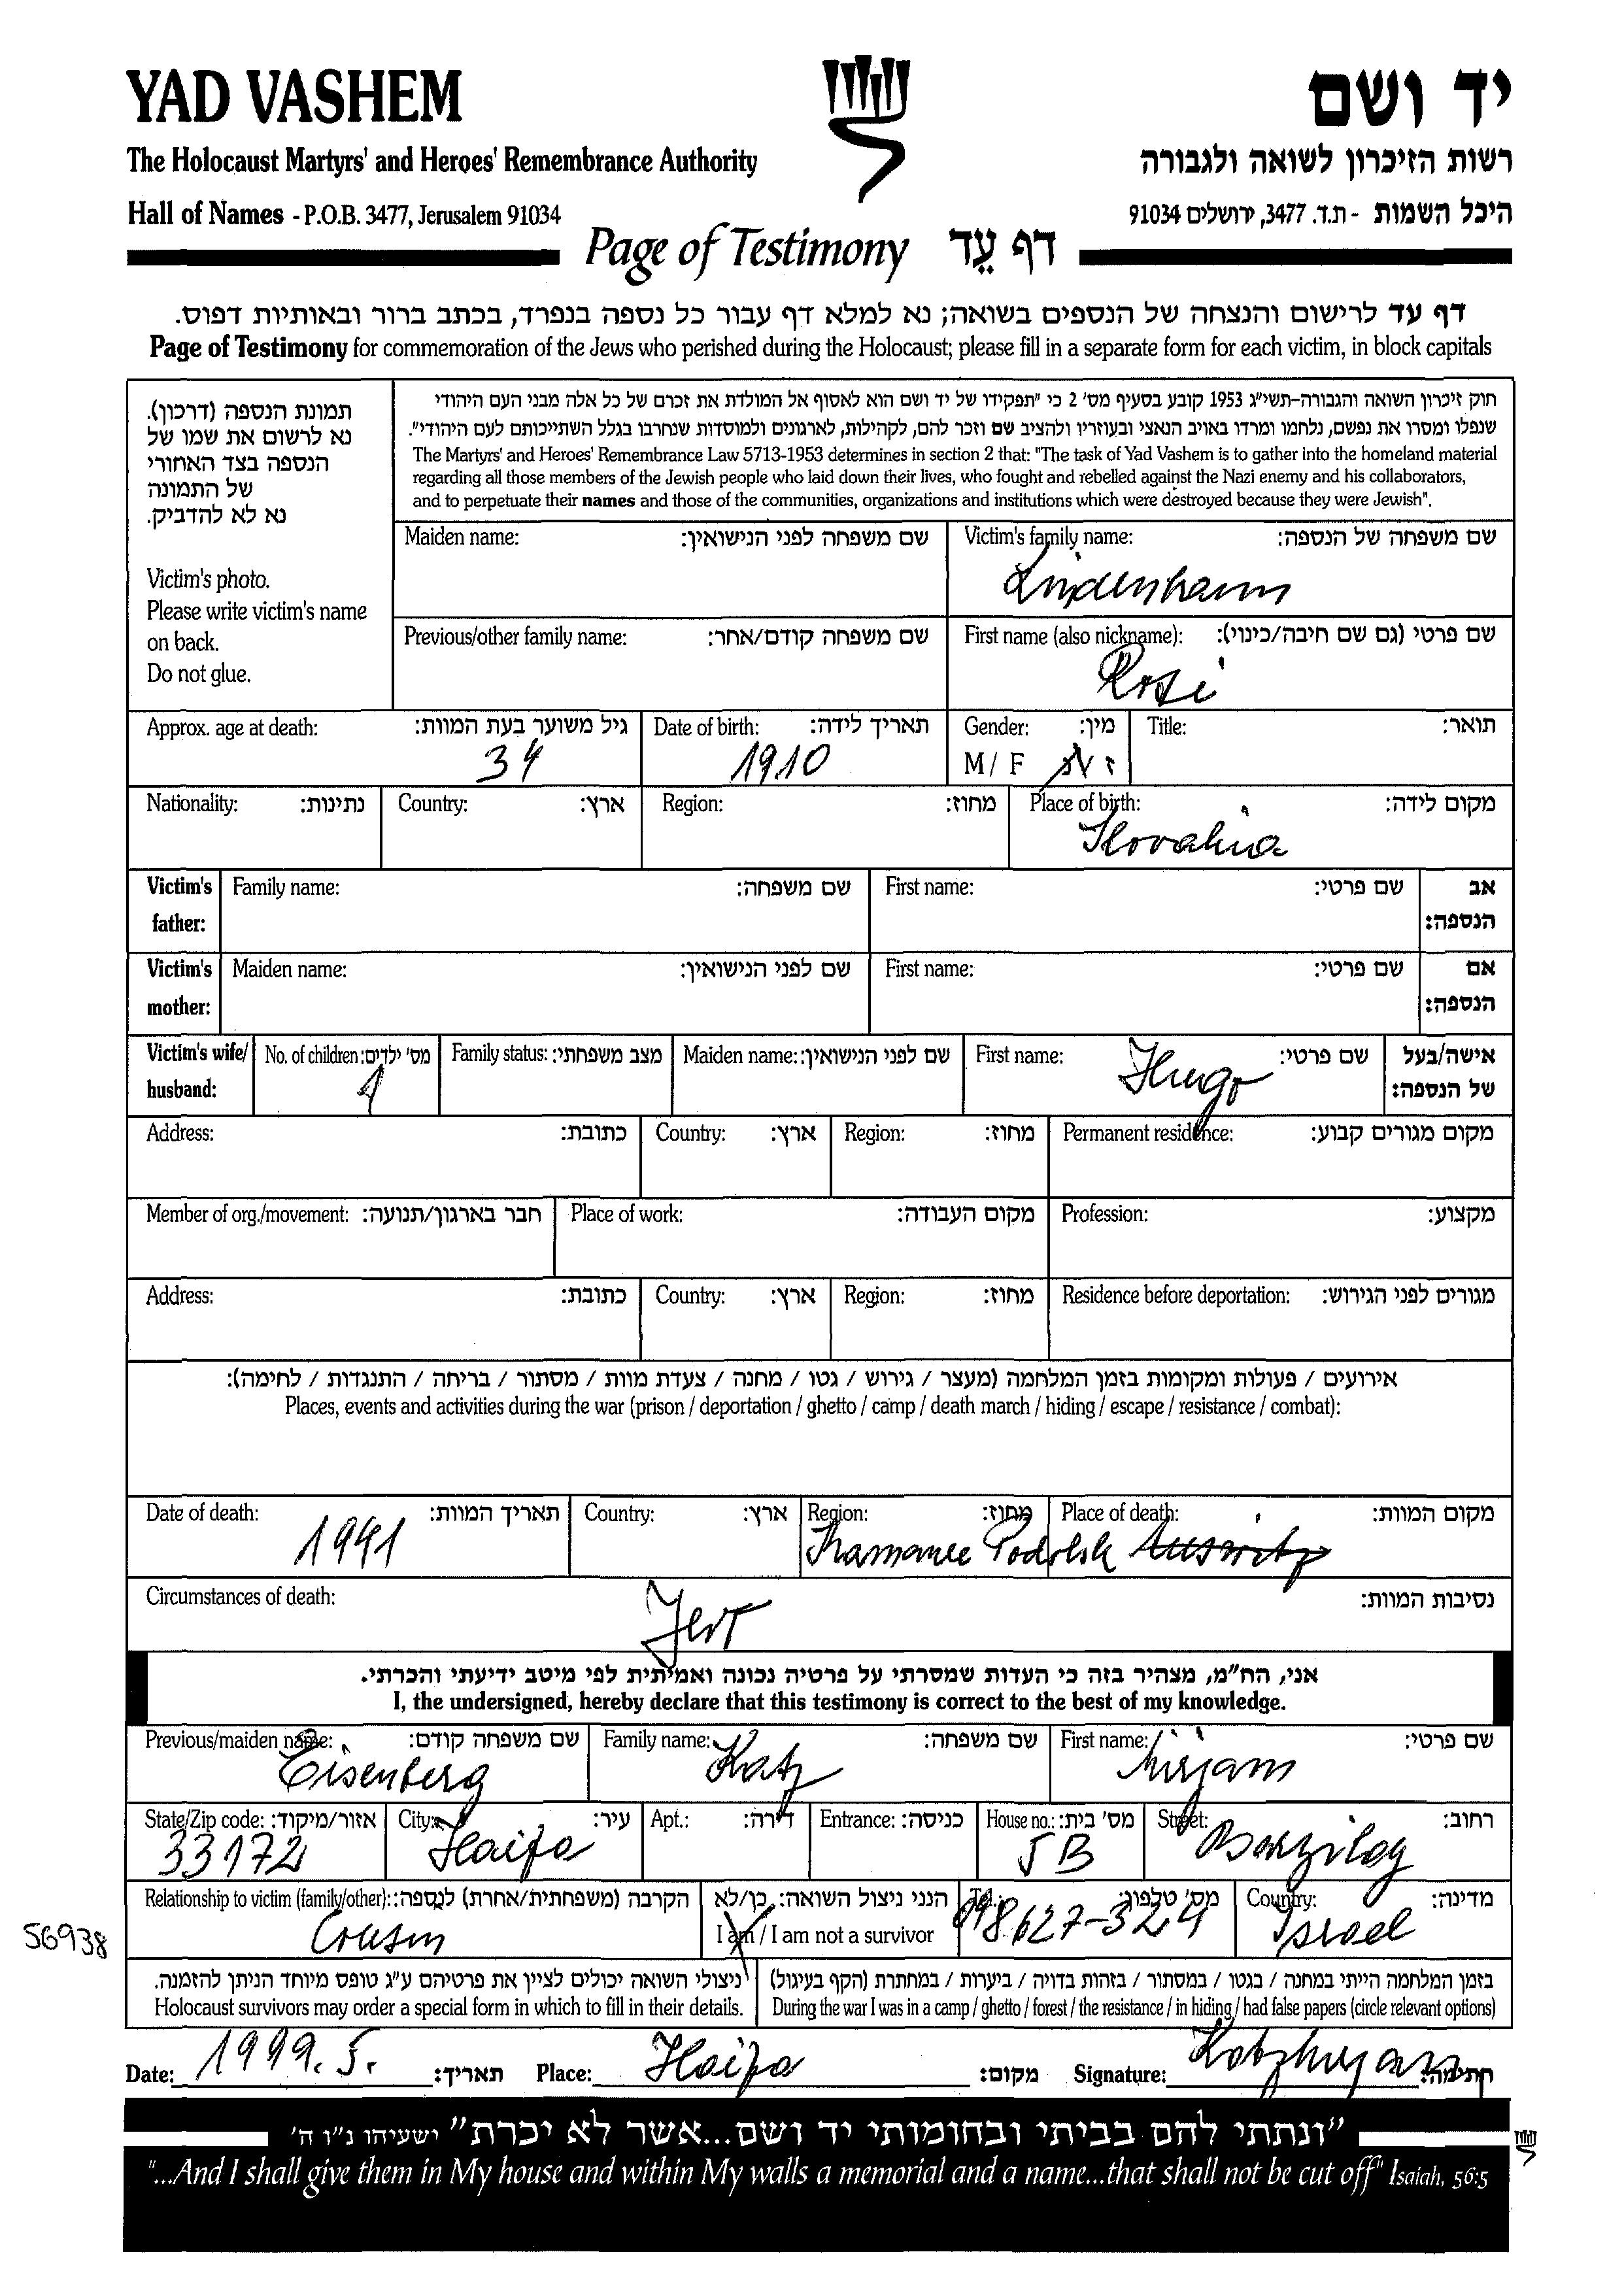 YAD VASHEM
יד ושם
The Holocaust Martyrs' and Heroes' Remembrance Authority
רשות הזיכרון לשואה ולגבורה
Hall of Names - P.O.B. 3477, Jerusalem 91034
היכל השמות - ת.ד. 3477, ירושלים 91034
Page of Testimony דף עֵד
דף עד לרישום והנצחה של הנספים בשואה; נא למלא דף עבור כל נספה בנפרד, בכתב ברור ובאותיות דפוס.
Page of Testimony for commemoration of the Jews who perished during the Holocaust; please fill in a separate form for each victim, in block capitals
תמונת הנספה (דרכון).
נא לרשום את שמו של
הנספה בצד האחורי
של התמונה
נא לא להדביק.
Victim's photo.
Please write victim's name
on back.
Do not glue.
חוק זיכרון השואה והגבורה-תשי"ג 1953 קובע בסעיף מס' 2 כי "תפקידו של יד ושם הוא לאסוף אל המולדת את זכרם של כל אלה מבני העם היהודי
שנפלו ומסרו את נפשם, נלחמו ומרדו באויב הנאצי ובעוזריו ולהציב שם וזכר להם, לקהילות, לארגונים ולמוסדות שנחרבו בגלל השתייכותם לעם היהודי".
The Martyrs' and Heroes' Remembrance Law 5713-1953 determines in section 2 that: "The task of Yad Vashem is to gather into the homeland material
regarding all those members of the Jewish people who laid down their lives, who fought and rebelled against the Nazi enemy and his collaborators,
and to perpetuate their names and those of the communities, organizations and institutions which were destroyed because they were Jewish".
Maiden name: שם משפחה לפני הנישואין:
Victim's family name: שם משפחה של הנספה:
Previous/other family name: שם משפחה קודם/אחר:
First name (also nickname): שם פרטי (גם שם חיבה/כינוי):
Rosi
Approx. age at death: גיל משוער בעת המוות:
34
Date of birth: תאריך לידה:
1910
Gender: מין:
M / F ז / נ
Title: תואר:
Nationality: נתינות:
Country: ארץ:
Region: מחוז:
Place of birth: מקום לידה:
Slovakia
Victim's father: Family name: שם משפחה: First name: שם פרטי: אב הנספה:
Victim's mother: Maiden name: שם לפני הנישואין: First name: שם פרטי: אם הנספה:
Victim's wife/ husband: No. of children: מס' ילדים: Family status: מצב משפחתי: Maiden name: שם לפני הנישואין: First name: שם פרטי: אישה/בעל של הנספה:
1 Hugo
Address: כתובת: Country: ארץ: Region: מחוז: Permanent residence: מקום מגורים קבוע:
Member of org./movement: חבר בארגון/תנועה: Place of work: מקום העבודה: Profession: מקצוע:
Address: כתובת: Country: ארץ: Region: מחוז: Residence before deportation: מגורים לפני הגירוש:
אירועים / פעולות ומקומות בזמן המלחמה (מעצר / גירוש / גטו / מחנה / צעדת מוות / מסתור / בריחה / התנגדות / לחימה):
Places, events and activities during the war (prison / deportation / ghetto / camp / death march / hiding / escape / resistance / combat):
Date of death: תאריך המוות: Country: ארץ: Region: מחוז: Place of death: מקום המוות:
1941 Kamanec Podolsk
Circumstances of death: נסיבות המוות:
אני, הח"מ, מצהיר בזה כי העדות שמסרתי על פרטיה נכונה ואמיתית לפי מיטב ידיעתי והכרתי.
I, the undersigned, hereby declare that this testimony is correct to the best of my knowledge.
Previous/maiden name: שם משפחה קודם: Family name: שם משפחה: First name: שם פרטי:
Eisenberg Katz Mirjam
State/Zip code: אזור/מיקוד: City: עיר: Apt.: דירה: Entrance: כניסה: House no.: מס' בית: Street: רחוב:
33172 Haifa 5B Barzilay
Relationship to victim (family/other): הקרבה (משפחתית/אחרת) לנספה: הנני ניצול השואה: כן/לא Tel.: מס' טלפון: Country: מדינה:
Cousin I am / I am not a survivor 048627-324 Israel
56938
ניצולי השואה יכולים לציין את פרטיהם ע"ג טופס מיוחד הניתן להזמנה.
Holocaust survivors may order a special form in which to fill in their details.
בזמן המלחמה הייתי במחנה / בגטו / במסתור / בזהות בדויה / ביערות / במחתרת (הקף בעיגול)
During the war I was in a camp / ghetto / forest / the resistance / in hiding / had false papers (circle relevant options)
Date: 1999.5. תאריך: Place: Haifa מקום: Signature: Katz Mirjam חתימה:
"ונתתי להם בביתי ובחומותי יד ושם...אשר לא יכרת" ישעיהו נ"ו ה'
"...And I shall give them in My house and within My walls a memorial and a name...that shall not be cut off" Isaiah, 56:5